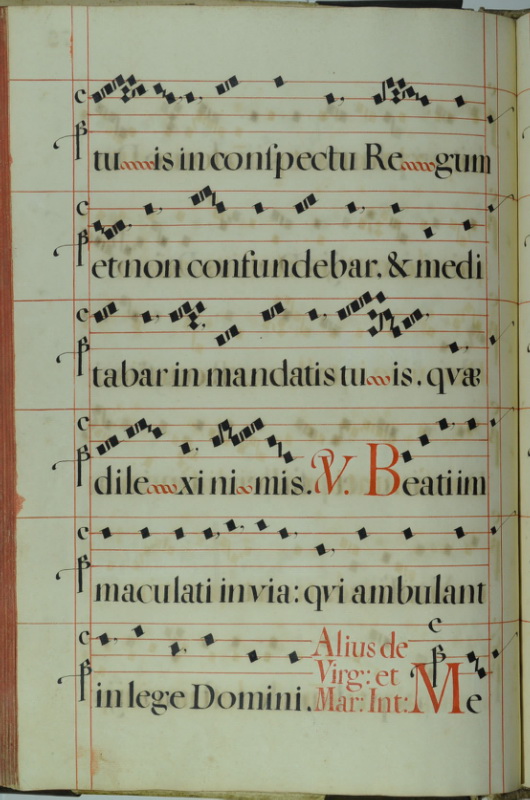 tuis in conſpectu Regum
et non confundebar. & medi
tabar in mandatis tuis. qvæ
dilexi nimis. V. Beati im
maculati in via: qvi ambulant
in lege Domini. Alius de
Virg: et
Mar: Int: Me